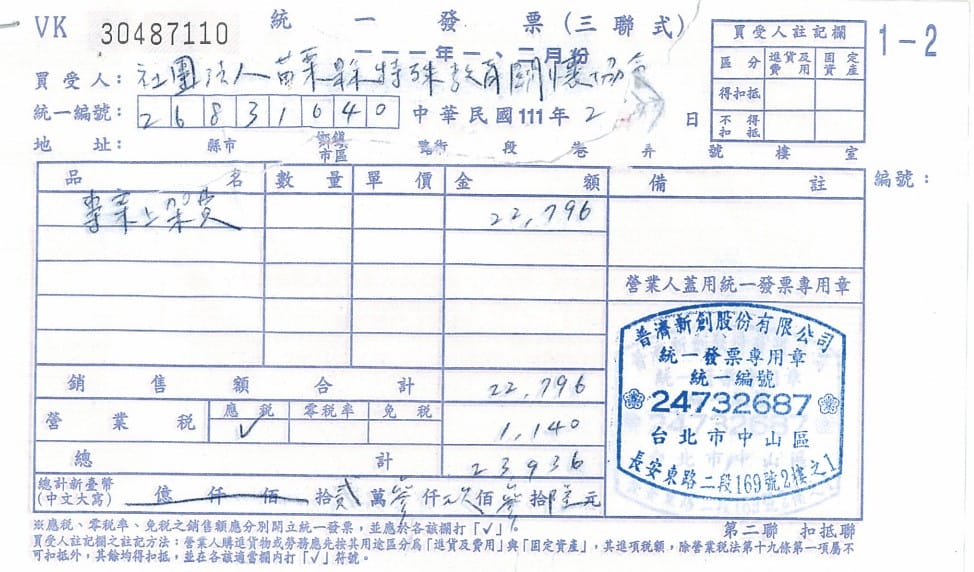 VK 30487110 統一發票(三聯式)
一一一年一、二月份
買受人註記欄
區分 進貨及費用 固定資產
得扣抵
不得扣抵
1-2
買受人:社團法人苗栗縣特殊教育關懷協會
統一編號:26831040 中華民國111年2 日
地址: 縣市 鄉鎮市區 路街 段 巷 弄 號 樓 室
品名 數量 單價 金額 備註 編號:
專案上架費 22,796
營業人蓋用統一發票專用章
普濟新創股份有限公司
統一發票專用章
統一編號
24732687
台北市中山區
長安東路二段169號2樓之1
銷售額合計 22,796
營業稅 應稅 ✓ 零稅率 免稅 1,140
總計 23,936
總計新臺幣(中文大寫) 億 仟 佰 拾貳萬參仟玖佰參拾陸元
※應稅、零稅率、免稅之銷售額應分別開立統一發票,並應於各該欄打「✓」。
第二聯 扣抵聯
買受人註記欄之註記方法:營業人購進貨物或勞務應先按其用途區分為「進貨及費用」與「固定資產」,其進項稅額,除營業稅法第十九條第一項屬不
可扣抵外,其餘均得扣抵,並在各該適當欄內打「✓」符號。